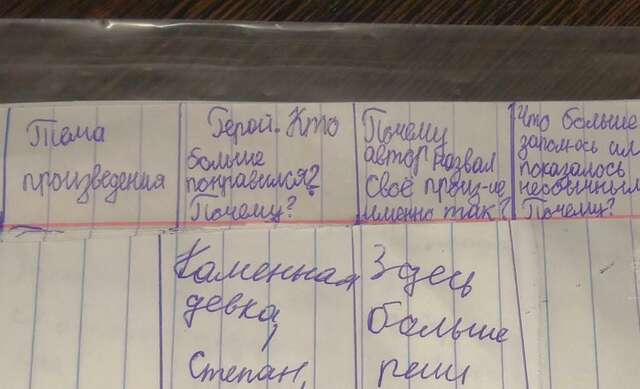 Тема
произведения
Герой. Кто
больше
понравился?
Почему?
Почему
автор назвал
своё произ-ие
именно так?
Что больше
запом-ось или
показалось
необычным
Почему?
Каменная
девка,
Степан,
Здесь
больше
речи